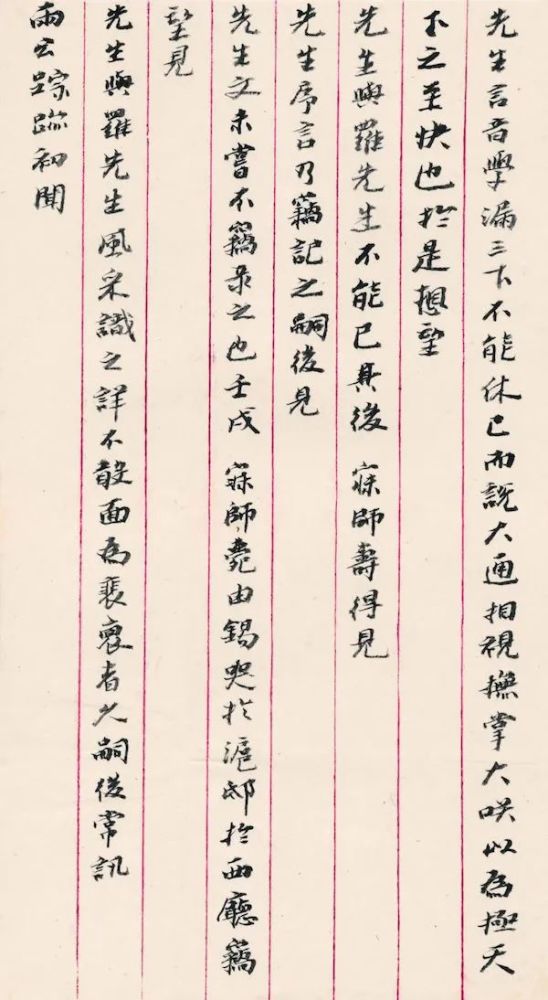 先生言音學漏三下不能休已而說大通相視撫掌大咲以為極天
下之至快也於是想望
先生與羅先生不能已其後 寐師壽得見
先生序言乃竊記之嗣後見
先生文未嘗不竊录之也壬戌 寐師薨由錫哭於滬邸於西廳竊
望見
先生與羅先生風采識之詳不敢面為裴褱者久嗣後常訊
兩公踪跡初聞